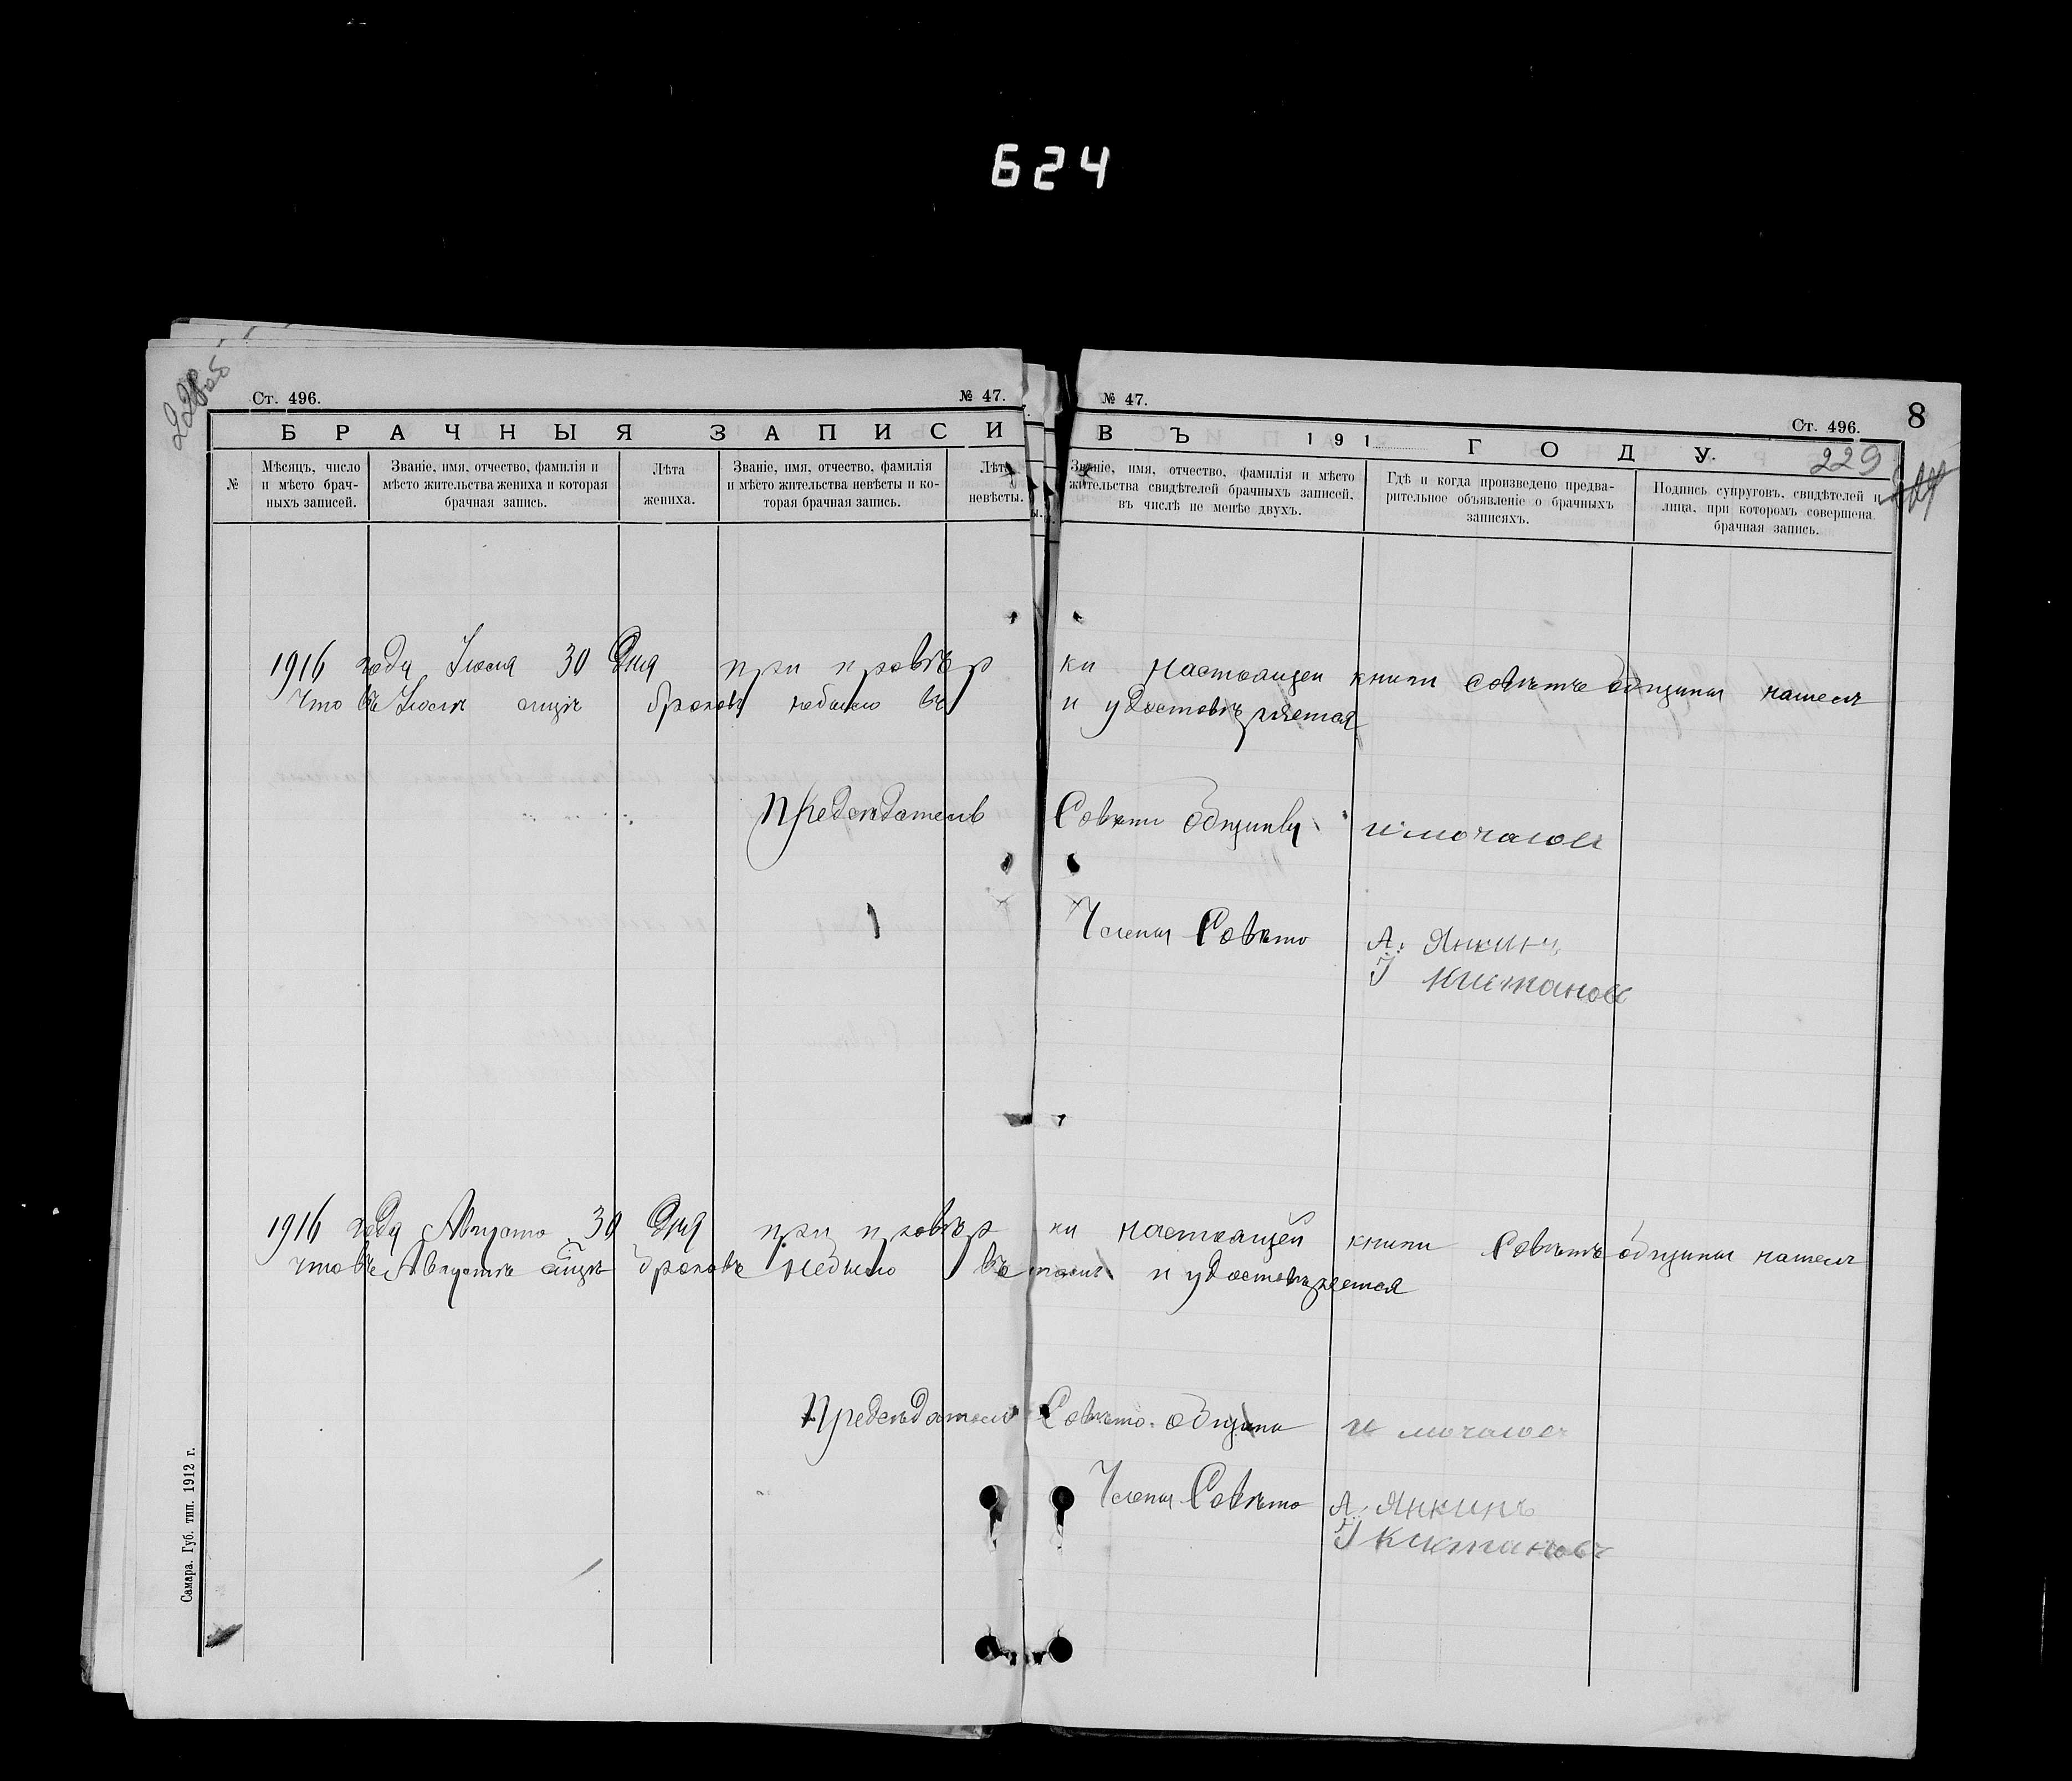 624
Ст. 496.
№ 47.
БРАЧНЫЯ ЗАПИСИ
№
Мѣсяцъ, число
и мѣсто брач-
ныхъ записей.
Званіе, имя, отчество, фамилія и
мѣсто жительства жениха и которая
брачная запись.
Лѣта
жениха.
Званіе, имя, отчество, фамилія
и мѣсто жительства невѣсты и ко-
торая брачная запись.
Лѣта
невѣсты.
№ 47.
Ст. 496.
8
ВЪ 191 ГОДУ.
229
Званіе, имя, отчество, фамилія и мѣсто
жительства свидѣтелей брачныхъ записей.
въ числѣ не менѣе двухъ.
Гдѣ и когда произведено предва-
рительное объявленіе о брачныхъ
записяхъ.
Подпись супруговъ, свидѣтелей и
лица, при которомъ совершена
брачная запись.
1916 года Іюля 30 Дня при провѣр ки настоящей книги совѣтъ общины нашелъ
что въ Іюлѣ браковъ небыло и удостовѣряется
Предсѣдатель Совѣта общины
Члены Совѣта А. Янкинъ
І Киктановъ
1916 года Августа 30 Дня при провѣр ки настоящей книги Совѣтъ общины нашелъ
что въ Августѣ браковъ небыло въ и удостовѣряется
Предсѣдатель Совѣта общины
Члены Совѣта А. Янкинъ
І Киктановъ
Самара. Губ. тип. 1912 г.